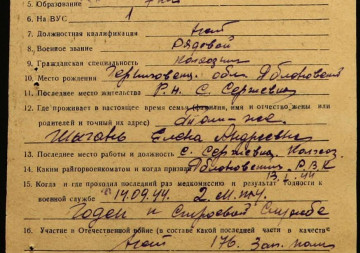 5. Образование 7 кл
6. На ВУС 1
7. Должностная квалификация
8. Военное звание Рядовой
9. Гражданская специальность Колхозник
10. Место рождения обл. Яблоновский
11. Последнее место жительства Р-н. С. Сергиевец
12. Где проживает в настоящее время семья (фамилия, имя и отчество жены или
родителей и точный на адрес)
Елена Андреевна
13. Последнее место работы и должность С. Колхоз
14. Каким райгорвоенкоматом и когда призван Р.В.К
13.1.44
15. Когда и где проходил последний раз медкомиссию и результат годности к
военной службе 14.09.44.
Годен к строевой службе
16. Участие в Отечественной войне (в составе какой последней части в качест
176. Зап. полк